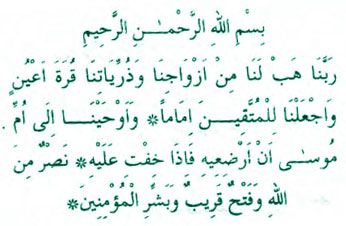 بِسْمِ اللهِ الرَّحْمٰنِ الرَّحِيمِ
رَبَّنَا هَبْ لَنَا مِنْ اَزْوَاجِنَا وَذُرِّيَاتِنَا قُرَةَ اَعْيُنٍ
وَاجْعَلْنَا لِلْمُتَّقِينَ اِمَاماً * وَاَوْحَيْنَا اِلَى اُمِّ
مُوسٰى اَنْ اَرْضِعِيهِ فَاِذَا خِفْتِ عَلَيْهِ * نَصْرٌ مِنَ
اللهِ وَفَتْحٌ قَرِيبٌ وَبَشِّرِ الْمُؤْمِنِينَ *